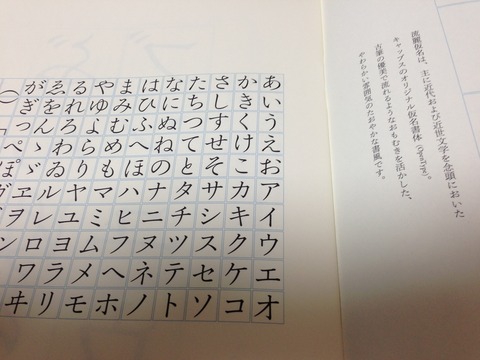 流麗仮名は、主に近代および近世文学を念頭においた
キャップスのオリジナル仮名書体(OpenType)。
古筆の優美で流れるようなおもむきを活かした、
やわらかい雰囲気のたおやかな書風です。
あいうえおアイウエオ
かきくけこカキクケコ
さしすせそサシスセソ
たちつてとタチツテト
なにぬねのナニヌネノ
はひふへほハヒフヘホ
まみむめもマミムメモ
やゆよらりヤユヨラリ
るれろわゐルレロワヰ
ゑをんゝゞヱヲン
がぎっぺぽヴ